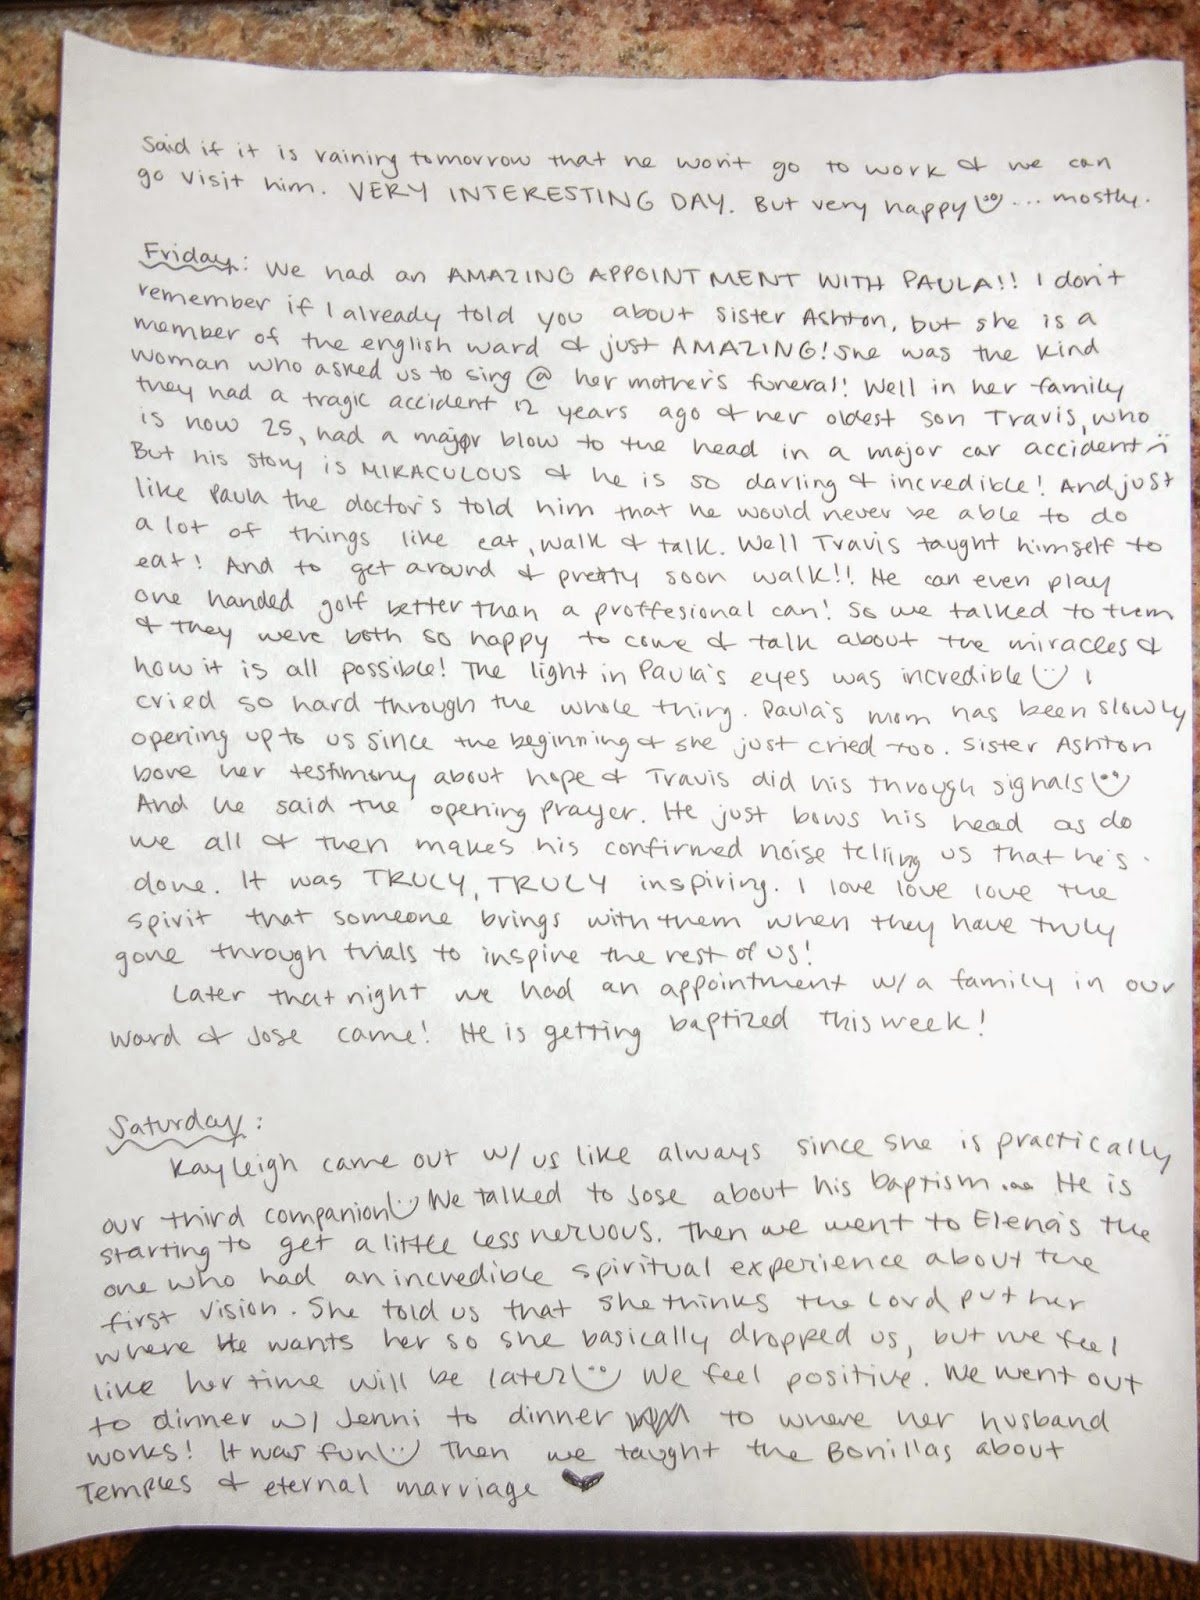 Said if it is raining tomorrow that he won't go to work & we can
go visit him. VERY INTERESTING DAY. But very happy ... mostly.
Friday: We had an AMAZING APPOINTMENT WITH PAULA!! I don't
remember if I already told you about Sister Ashton, but she is a
member of the english ward & just AMAZING! She was the kind
woman who asked us to sing @ her mother's funeral! Well in her family
they had a tragic accident 12 years ago & her oldest son Travis, who
is now 25, had a major blow to the head in a major car accident
But his story is MIRACULOUS & he is so darling & incredible! And just
like Paula the doctor's told him that he would never be able to do
a lot of things like eat, walk & talk. Well Travis taught himself to
eat! And to get around & pretty soon walk!! He can even play
one handed golf better than a proffesional can! So we talked to them
& they were both so happy to come & talk about the miracles &
how it is all possible! The light in Paula's eyes was incredible I
cried so hard through the whole thing. Paula's mom has been slowly
opening up to us since the beginning & she just cried too. Sister Ashton
bore her testimony about hope & Travis did his through signals
And he said the opening prayer. He just bows his head as do
we all & then makes his confirmed noise telling us that he's
done. It was TRULY, TRULY inspiring. I love love love the
spirit that someone brings with them when they have truly
gone through trials to inspire the rest of us!
Later that night we had an appointment w/ a family in our
ward & Jose came! He is getting baptized this week!
Saturday:
Kayleigh came out w/ us like always since she is practically
our third companion We talked to Jose about his baptism... He is
starting to get a little less nervous. Then we went to Elena's the
one who had an incredible spiritual experience about the
first vision. She told us that she thinks the Lord put her
where He wants her so she basically dropped us, but we feel
like her time will be later We feel positive. We went out
to dinner w/ Jenni to dinner to where her husband
works! It was fun Then we taught the Bonillas about
Temples & eternal marriage